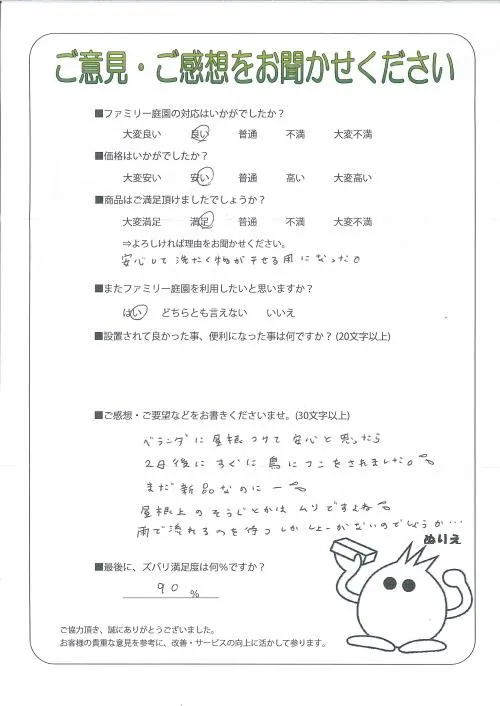 ご意見・ご感想をお聞かせください
■ファミリー庭園の対応はいかがでしたか？
大変良い 良い 普通 不満 大変不満
■価格はいかがでしたか？
大変安い 安い 普通 高い 大変高い
■商品はご満足頂けましたでしょうか？
大変満足 満足 普通 不満 大変不満
⇒よろしければ理由をお聞かせください。
安心して洗たく物が干せる用になった。
■またファミリー庭園を利用したいと思いますか？
はい どちらとも言えない いいえ
■設置されて良かった事、便利になった事は何ですか？(20文字以上)
■ご感想・ご要望などをお書きくださいませ。(30文字以上)
ベランダに屋根つけて安心と思ったら
2日後にすぐに鳥にフンをされました。
まだ新品なのにー
屋根上のそうじとかはムリですよね
雨で流れるのを待つしかしょーがないのでしょうか…
ぬりえ
■最後に、ズバリ満足度は何％ですか？
90 ％
ご協力頂き、誠にありがとうございました。
お客様の貴重な意見を参考に、改善・サービスの向上に活かして参ります。